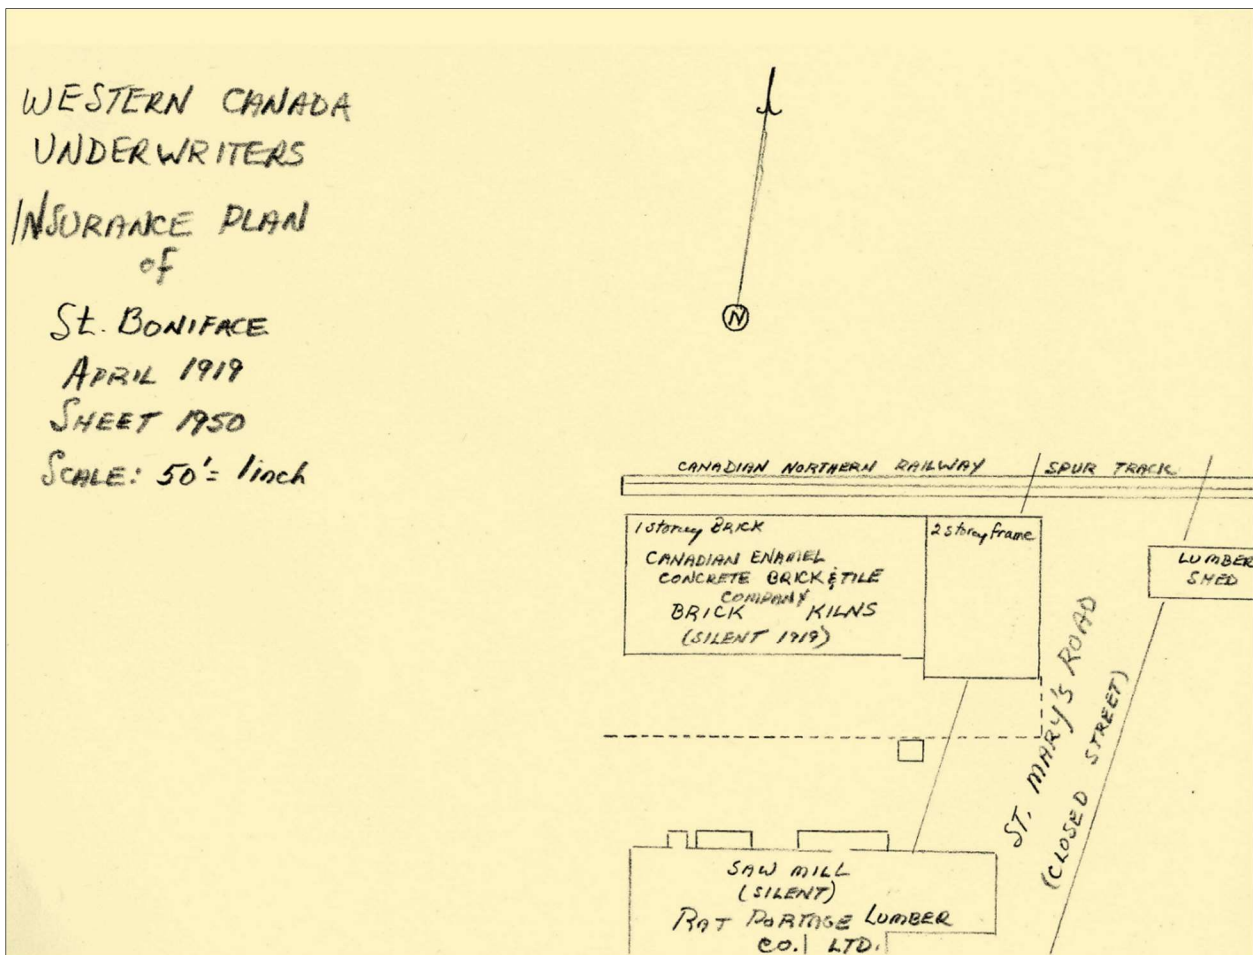 WESTERN CANADA
UNDERWRITERS
INSURANCE PLAN
of
St. BONIFACE
APRIL 1919
SHEET 1950
SCALE: 50'= 1inch
N
CANADIAN NORTHERN RAILWAY SPUR TRACK
1 storey BRICK
2 storey frame
CANADIAN ENAMEL
CONCRETE BRICK & TILE
COMPANY
BRICK KILNS
(SILENT 1919)
LUMBER
SHED
ST. MARY'S ROAD
(CLOSED STREET)
SAW MILL
(SILENT)
RAT PORTAGE LUMBER
CO. LTD.